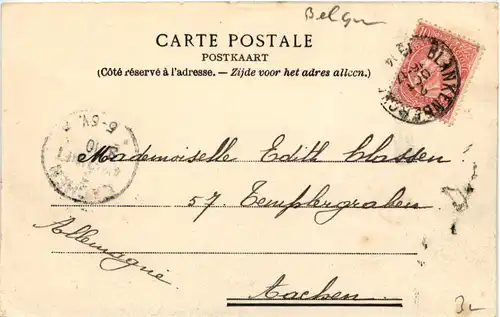 CARTE POSTALE
POSTKAART
(Côté réservé à l'adresse. — Zijde voor het adres alleen.)
BLANKENBERGHE
5-6V.
Mademoiselle Edith Classen
57 Templergraben
Allemagne
Aachen